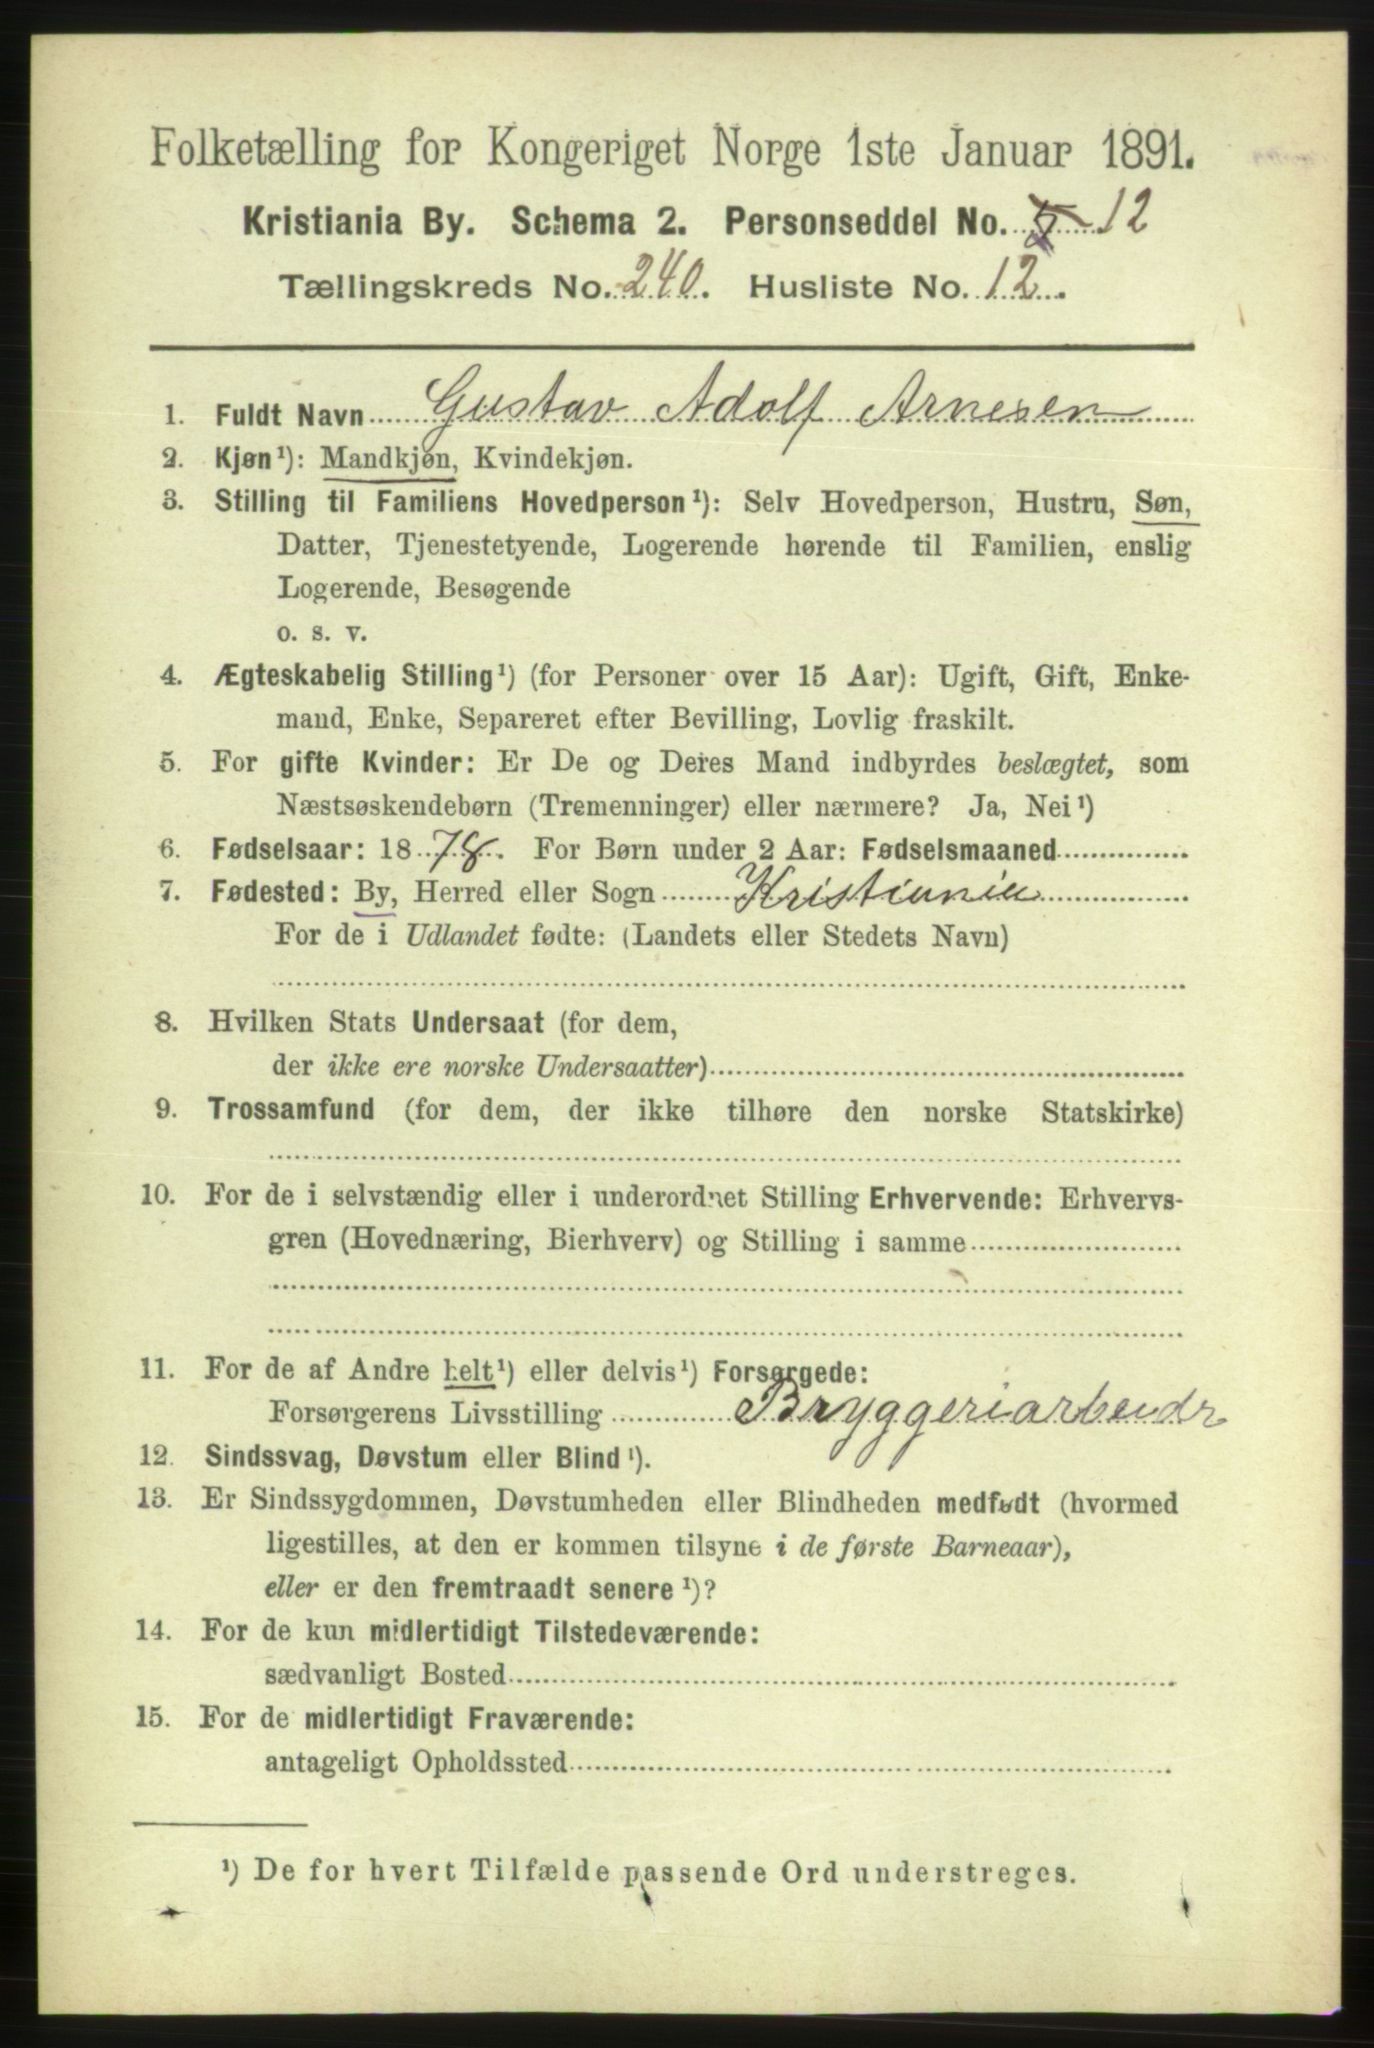 Folketælling for Kongeriget Norge 1ste Januar 1891.
Kristiania By. Schema 2. Personseddel No. 5 12
Tællingskreds No. 240. Husliste No. 12.
1. Fuldt Navn Gustav Adolf Arnesen
2. Kjøn¹): Mandkjøn, Kvindekjøn.
3. Stilling til Familiens Hovedperson¹): Selv Hovedperson, Hustru, Søn,
Datter, Tjenestetyende, Logerende hørende til Familien, enslig
Logerende, Besøgende
o. s. v.
4. Ægteskabelig Stilling¹) (for Personer over 15 Aar): Ugift, Gift, Enke-
mand, Enke, Separeret efter Bevilling, Lovlig fraskilt.
5. For gifte Kvinder: Er De og Deres Mand indbyrdes beslægtet, som
Næstsøskendebørn (Tremenninger) eller nærmere? Ja, Nei¹)
6. Fødselsaar: 1878. For Børn under 2 Aar: Fødselsmaaned
7. Fødested: By, Herred eller Sogn Kristiania
For de i Udlandet fødte: (Landets eller Stedets Navn)
8. Hvilken Stats Undersaat (for dem,
der ikke ere norske Undersaatter)
9. Trossamfund (for dem, der ikke tilhøre den norske Statskirke)
10. For de i selvstændig eller i underordnet Stilling Erhvervende: Erhvervs-
gren (Hovednæring, Bierhverv) og Stilling i samme
11. For de af Andre helt¹) eller delvis¹) Forsørgede:
Forsørgerens Livsstilling Bryggeriarbeidr
12. Sindssvag, Døvstum eller Blind¹).
13. Er Sindssygdommen, Døvstumheden eller Blindheden medfødt (hvormed
ligestilles, at den er kommen tilsyne i de første Barneaar),
eller er den fremtraadt senere¹)?
14. For de kun midlertidigt Tilstedeværende:
sædvanligt Bosted
15. For de midlertidigt Fraværende:
antageligt Opholdssted
¹) De for hvert Tilfælde passende Ord understreges.